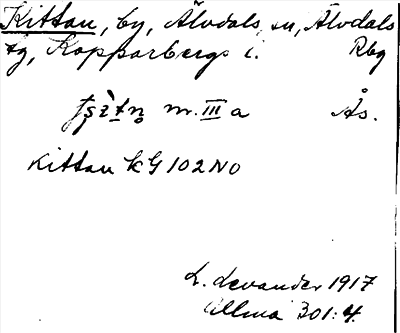 Kittan, by, Älvdals sn, Älvdals
tg, Kopparbergs l. Rbg
m. III a Ås.
Kittan kG 102 NO
L. Levander 1917
Allma 301:4.